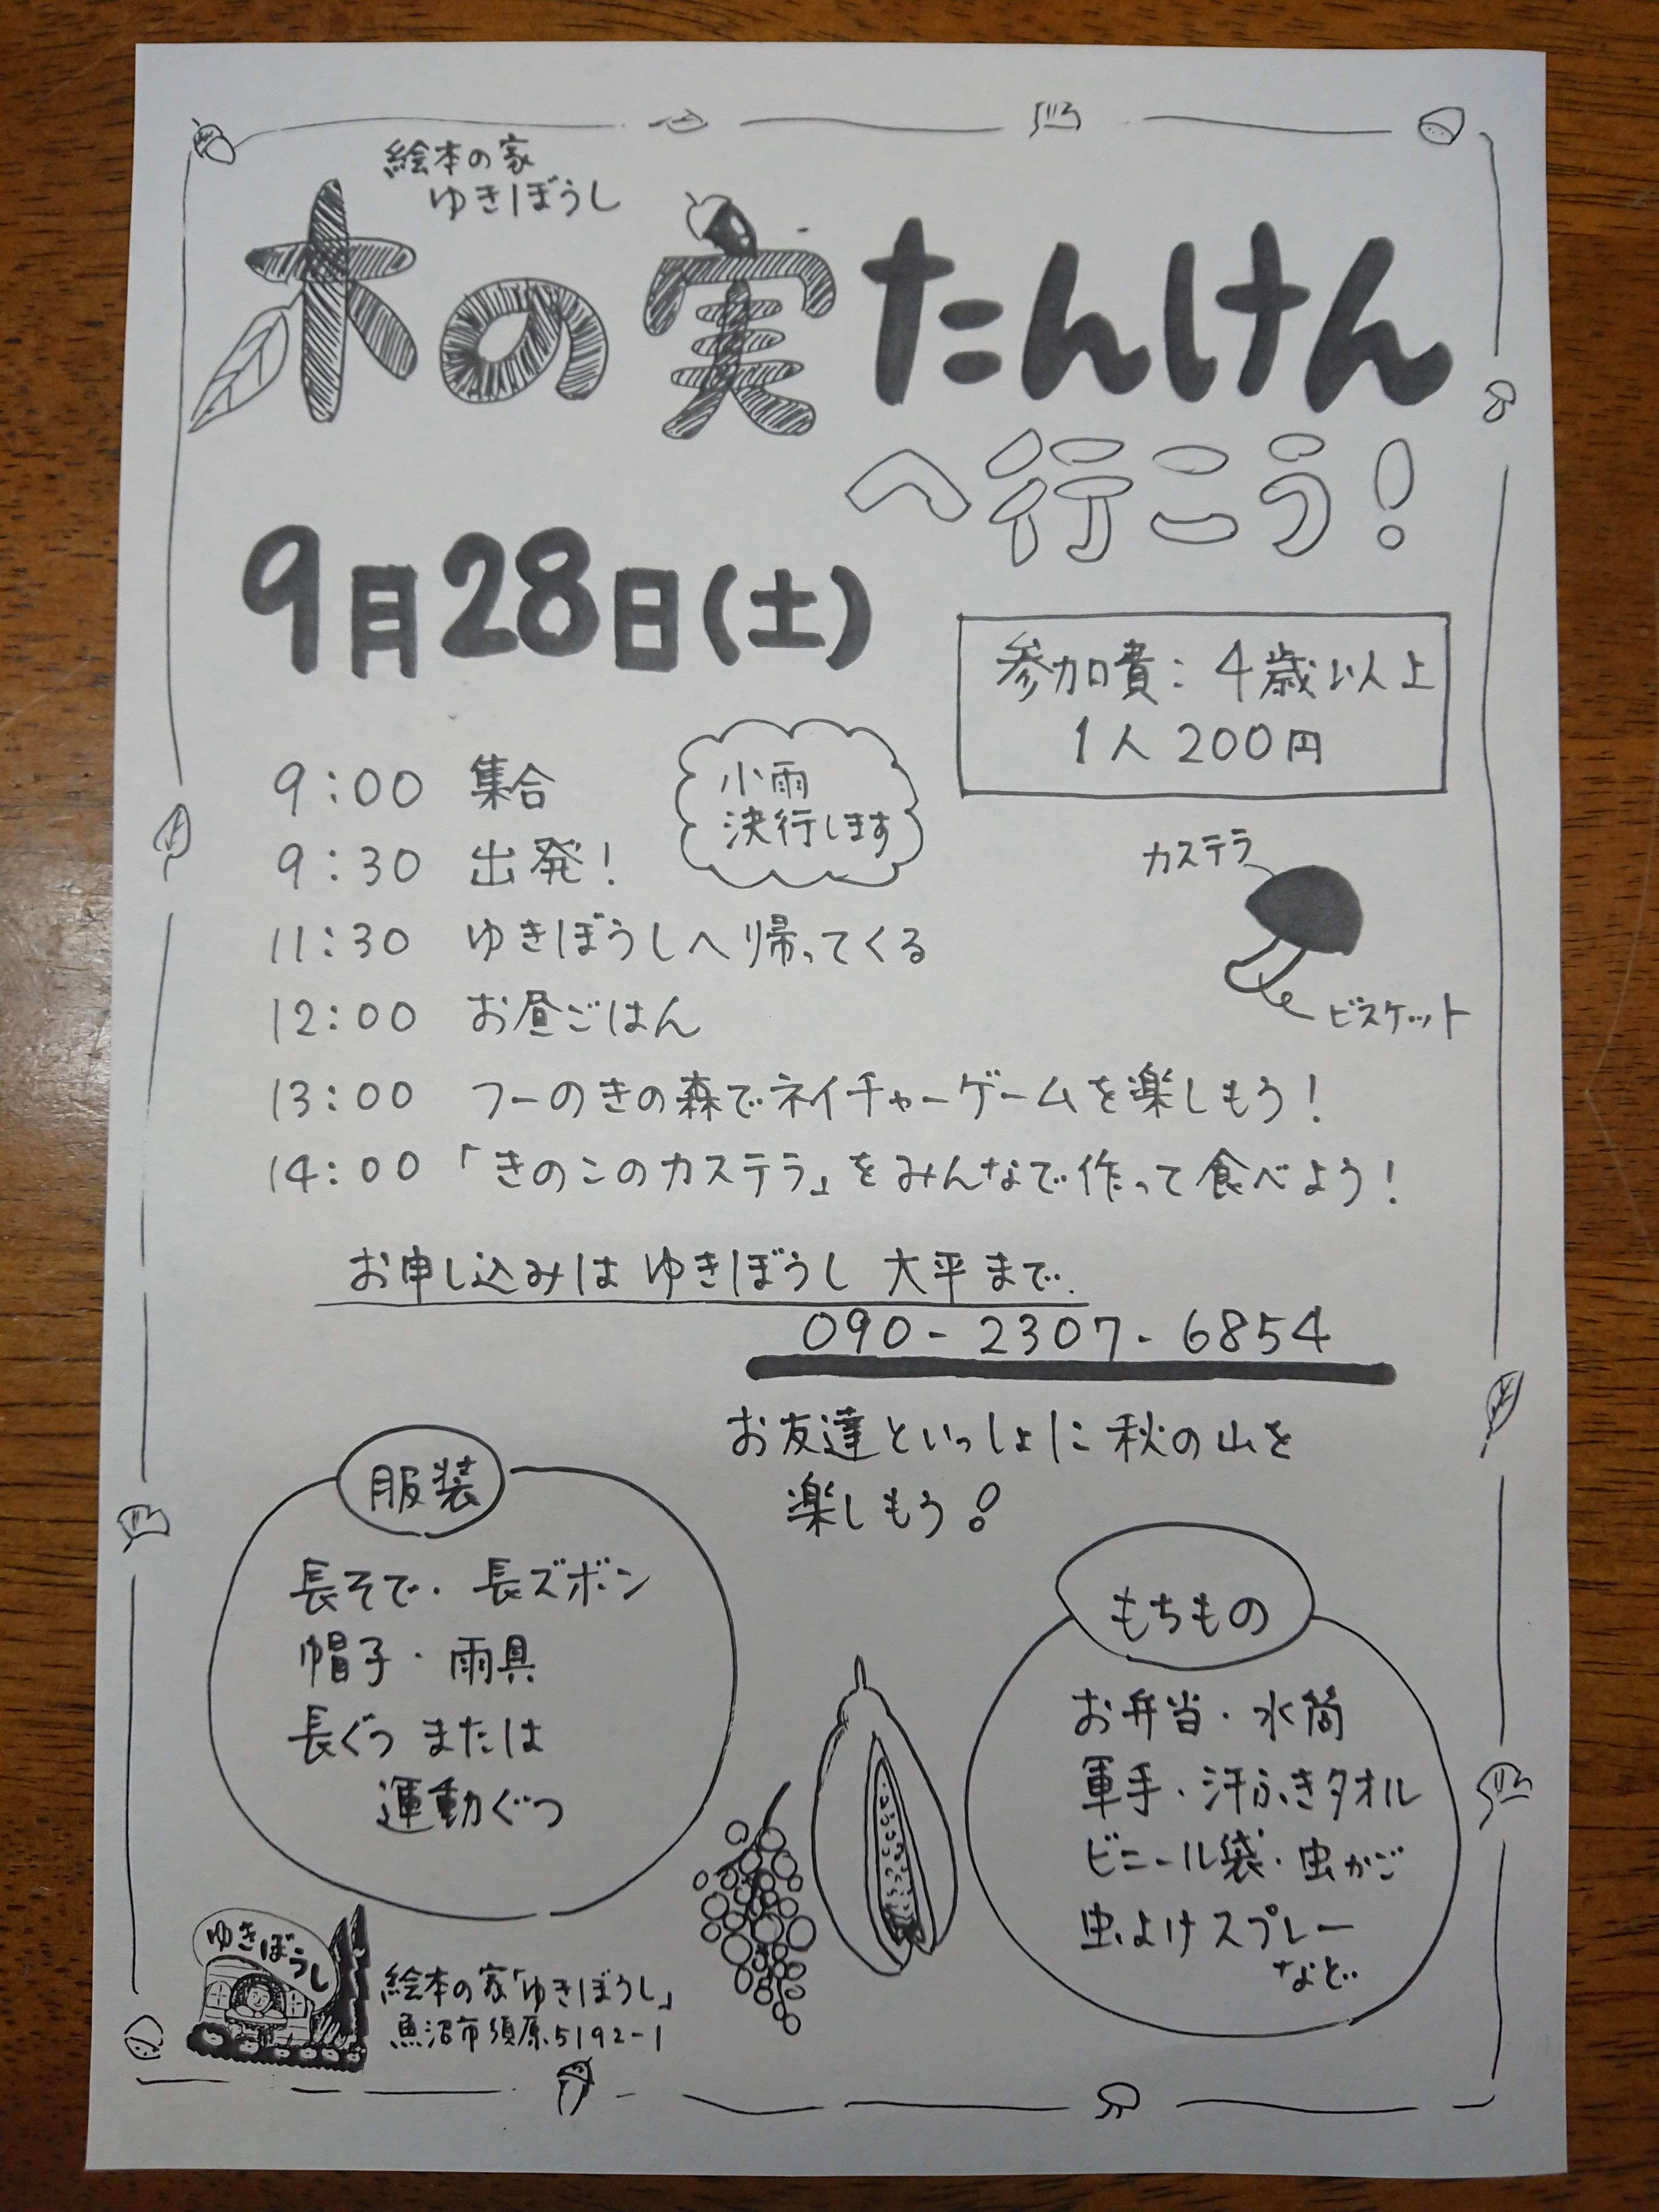 絵本の家
ゆきぼうし
木の実たんけん
へ行こう！
9月28日(土)
参加費：4歳以上
1人 200円
9：00 集合
小雨
決行します
9：30 出発！
11：30 ゆきぼうしへ帰ってくる
12：00 お昼ごはん
13：00 フーのきの森でネイチャーゲームを楽しもう！
14：00 「きのこのカステラ」をみんなで作って食べよう！
カステラ
ビスケット
お申し込みは ゆきぼうし 大平まで.
090-2307-6854
お友達といっしょに秋の山を
楽しもう！
服装
長そで・長ズボン
帽子・雨具
長ぐつ または
運動ぐつ
もちもの
お弁当・水筒
軍手・汗ふきタオル
ビニール袋・虫かご
虫よけスプレー
など
ゆきぼうし
絵本の家「ゆきぼうし」
魚沼市須原5192-1